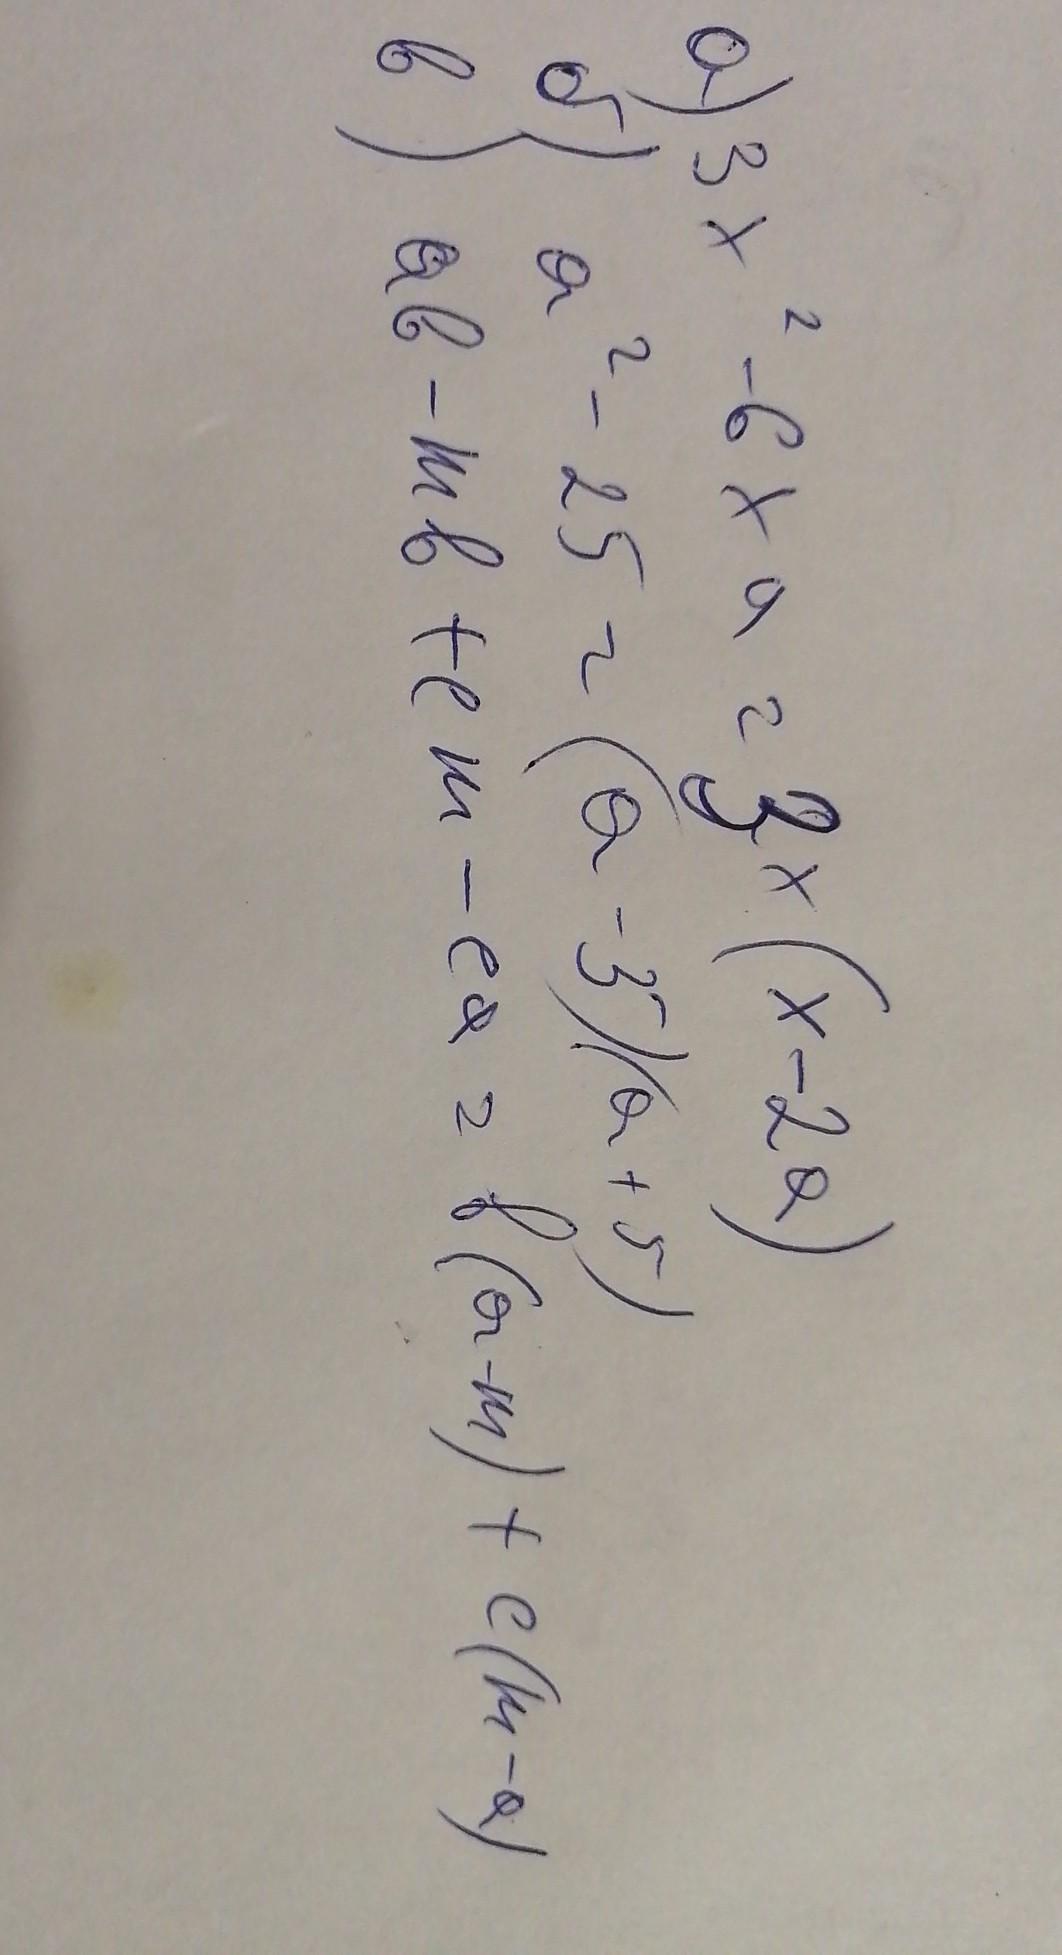 а) 3x² - 6xa = 3x(x - 2a)
б) a² - 25 = (a - 5)(a + 5)
в) ab - mb + cm - ca = b(a - m) + c(m - a)